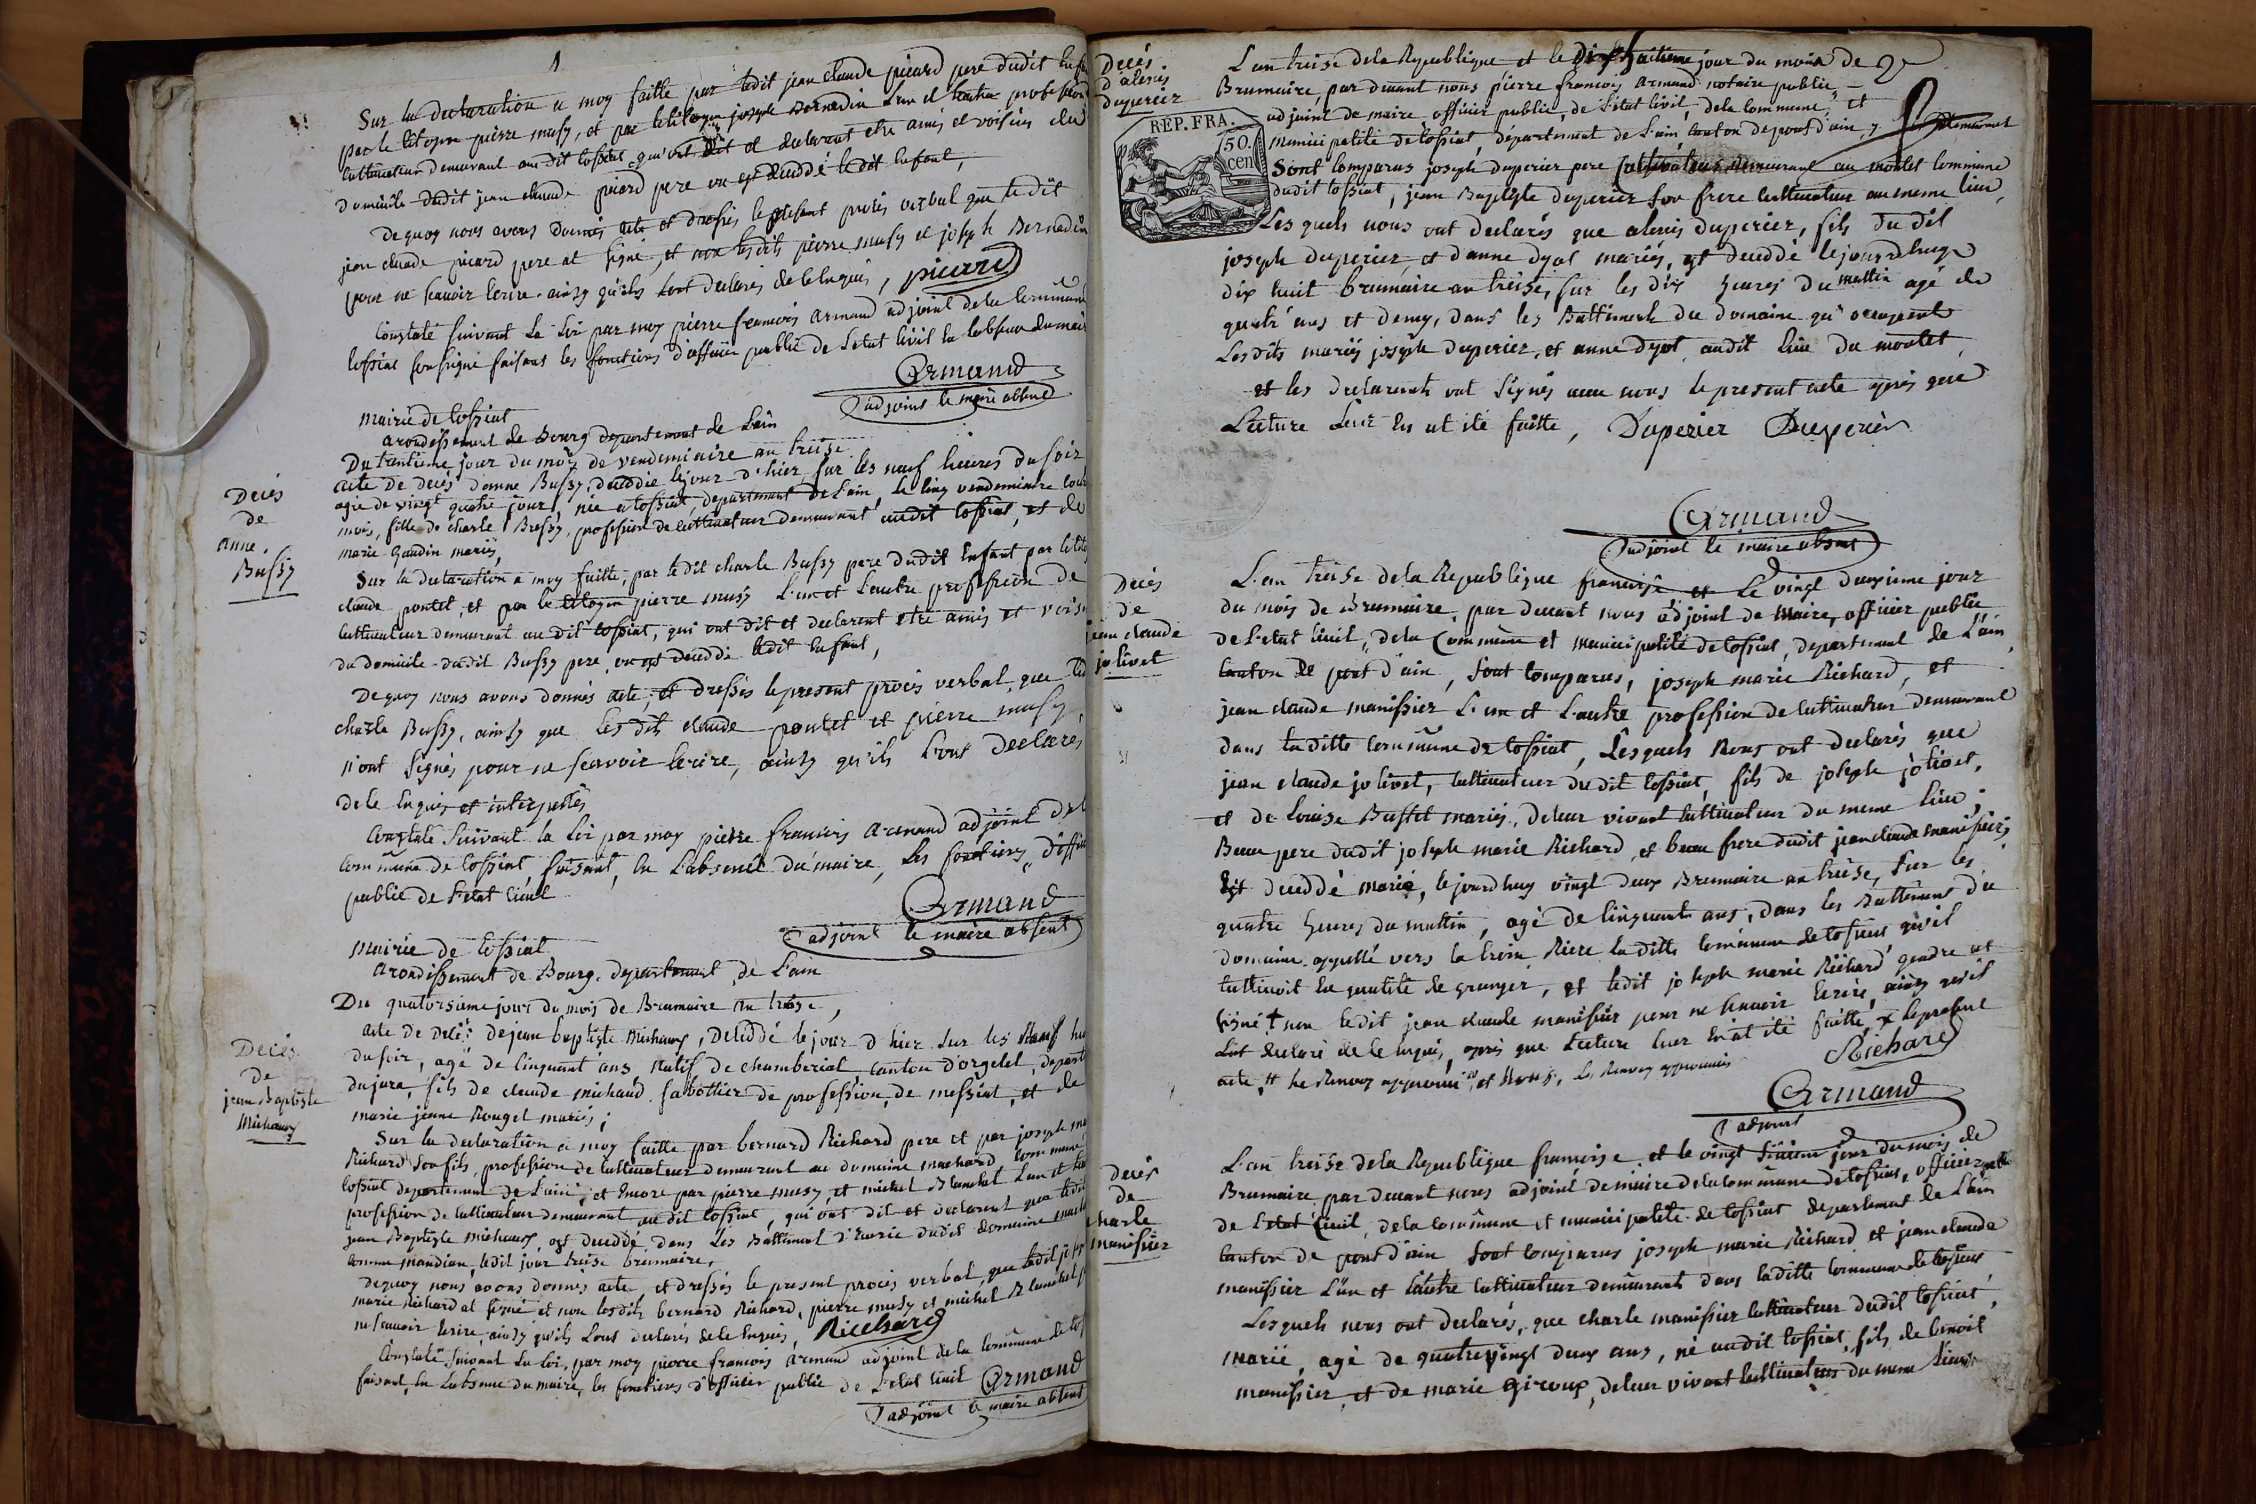 1
Sur la declaration a moy faitte par ledit jean claude picard pere dudit
par le citoyen pierre musy, et par le citoyen joseph Bernadin L'un et Lautre profession
cultivateur demeurant au dit tossiat, qui ont dit et declarent etre amis et voisins du
domicile dudit jean claude picard pere ou est deceddé ledit enfant,
De quoy nous avons donnés acte et dressés le present procès verbal que ledit
jean claude picard pere at signé, et non lesdits pierre musy et joseph Bernadin
pour ne scavoir ecrire ainsy qu'ils sont declarés de ce enquis, picard
Constaté suivant la Loi par moy pierre francois armand adjoint de la Commune
tossiat soussigné faisant les fonctions d'officier public de Letat civil en labsence du maire
Armand
adjoint le maire absent
mairie de tossiat
arondissement de Bourg departement de Lain
Du trentieme jour du mois de vendemiaire an treise
Deces
de
anne
Bussy
acte de deces danne Bussy, deceddée le jour d'hier sur les neuf heures du soir
agée de vingt quatre jour, née a tossiat, departement de Lain, Le cinq vendemiaire
mois, fille de charle Bussy, profession de cultivateur demeurant audit tossiat, et de
marie Gaudin mariés,
Sur la declaration a moy faitte, par ledit charle Bussy pere dudit Enfant par le
claude pontet, et par le citoyen pierre musy L'un et Lautre profession de
cultivateur demeurant au dit tossiat, qui ont dit et declarent etre amis et
du domicile dudit Bussy pere, ou est deceddé ledit enfant,
De quoy nous avons donnés acte, et dressés le present procès verbal, que
charle Bussy, ainsy que les dits claude pontet et pierre musy,
n'ont signés pour ne scavoir ecrire, ainsy qu'ils L'ont declarés
de ce enquis et interpellés
Constaté suivant la Loi par moy pierre francois armand adjoint de
commune de tossiat, faisant, en Labsence du maire, les fonctions,
public de Letat civil
Armand
adjoint le maire absent
mairie de tossiat
arondissement de Bourg, departement, de Lain
Du quatorsieme jour du mois de Brumaire an treise,
Deces
de
jean Baptiste
Michaud
acte de deces de jean baptiste Michaud, deceddé le jour d'hier sur les
du soir, agé de cinquant ans, natif de chamberiat, canton d'orgelet,
du jura, fils de claude michaud sabottier de profession, de messiat, et de
marie jenne Rouget mariés;
Sur la declaration a moy faitte par bernard Richard pere et par joseph
Richard son fils, profession de cultivateur demeurant au domaine machard commune
tossiat departement de Lain, et encore par pierre musy, et michel Blanchet Lun et
profession de cultivateur demeurant au dit tossiat, qui ont dit et declarent que ledit
jean Baptiste michaud, est deceddé, dans les Battiment d'Ecurie dudit domaine
comme mandian, ledit jour treise brumaire,
De quoy nous avons donnés acte, et dressés le present procès verbal, que ledit
marie Richard at signé et non lesdits bernard Richard, pierre musy et michel Blanchet
ne scavoir ecrire, ainsy qu'ils L'ont declarés de ce enquis, Richard
Constaté suivant la Loi, par moy pierre francois armand adjoint de la commune de
faisant, en Labsence du maire, les fonctions d'officier public de Letat civil Armand
adjoint le maire absent
Deces
d'alexis
duperier
REP. FRA.
50.
cen
L'an treise de la Republique et le Dix huitieme jour du mois de
Brumaire, par devant nous pierre francois armand notaire public,
adjoint de maire officier public, de L'etat civil, de la commune, et
municipalité de tossiat, département de Lain canton de pont d'ain,
Sont comparus joseph duperier pere Cultivateur demeurant au moulet commune
dudit tossiat, jean Baptiste duperier son frere cultivateur au meme lieu,
Les quels nous ont declarés que alexis duperier, fils du dit
joseph duperier, et d'anne dyot mariés, est deceddé le jourdhuy
dix huit brumaire an treise, sur les dix heures du mattin agé de
quatr'ans et demy, dans les Battiments du domaine qu'occupent
Lesdits mariés joseph duperier, et anne dyot audit lieu du moulet
et les declarants ont signés avec nous le present acte après que
Lecture Leur en at été faitte, Duperier Duperier
Armand
adjoint le maire absent
Deces
de
jean claude
jolivet
L'an treise de la Republique francoise et Le vingt deuxieme jour
du mois de Brumaire, par devant nous adjoint de maire, officier public
de Letat Civil, de la Commune et municipalité de tossiat, departement de Lain,
canton de pont d'ain, sont comparus, joseph marie Richard, et
jean claude manissier L'un et Lautre profession de cultivateur demeurant
dans laditte commune de tossiat, Lesquels Nous ont declarés que
jean claude jolivet, cultivateur dudit tossiat, fils de joseph jolivet,
et de Louise Buffet mariés, de leur vivant cultivateur du meme lieu;
Beau pere dudit joseph marie Richard, et beau frere dudit jean claude manissier,
Est deceddé marié, le jourdhuy vingt deux Brumaire an treise, sur les
quatre heures du mattin, agé de cinquant ans, dans les Battiment du
domaine appellé vers la Riere laditte commune de tossiat qu'il
cultivoit en qualité de granger, et ledit joseph marie Richard gendre at
signé + non ledit jean claude manissier pour ne scavoir ecrire, ainsy qu'il
Lat declaré de ce enquis, après que Lecture Leur en at été faitte, le present
acte, Le Renvoy approuvé et Nous, Les Renvoy approuvés Richard
Armand
adjoint
Deces
de
charle
manissier
L'an treise de la Republique francoise et le vingt sixieme jour du mois de
Brumaire par devant nous adjoint de maire de la commune de tossiat, officier public
de Letat Civil, de la commune et municipalité de tossiat departement de Lain
canton de pont d'ain sont comparus joseph marie Richard et jean claude
manissier L'un et Lautre cultivateur demeurant dans laditte commune de tossiat
Lesquels nous ont declarés, que charle manissier cultivateur dudit tossiat,
marié, agé de quatre vingt deux ans, né audit tossiat, fils de benoit
manissier, et de marie Giroux, de leur vivant cultivateurs du meme lieu,